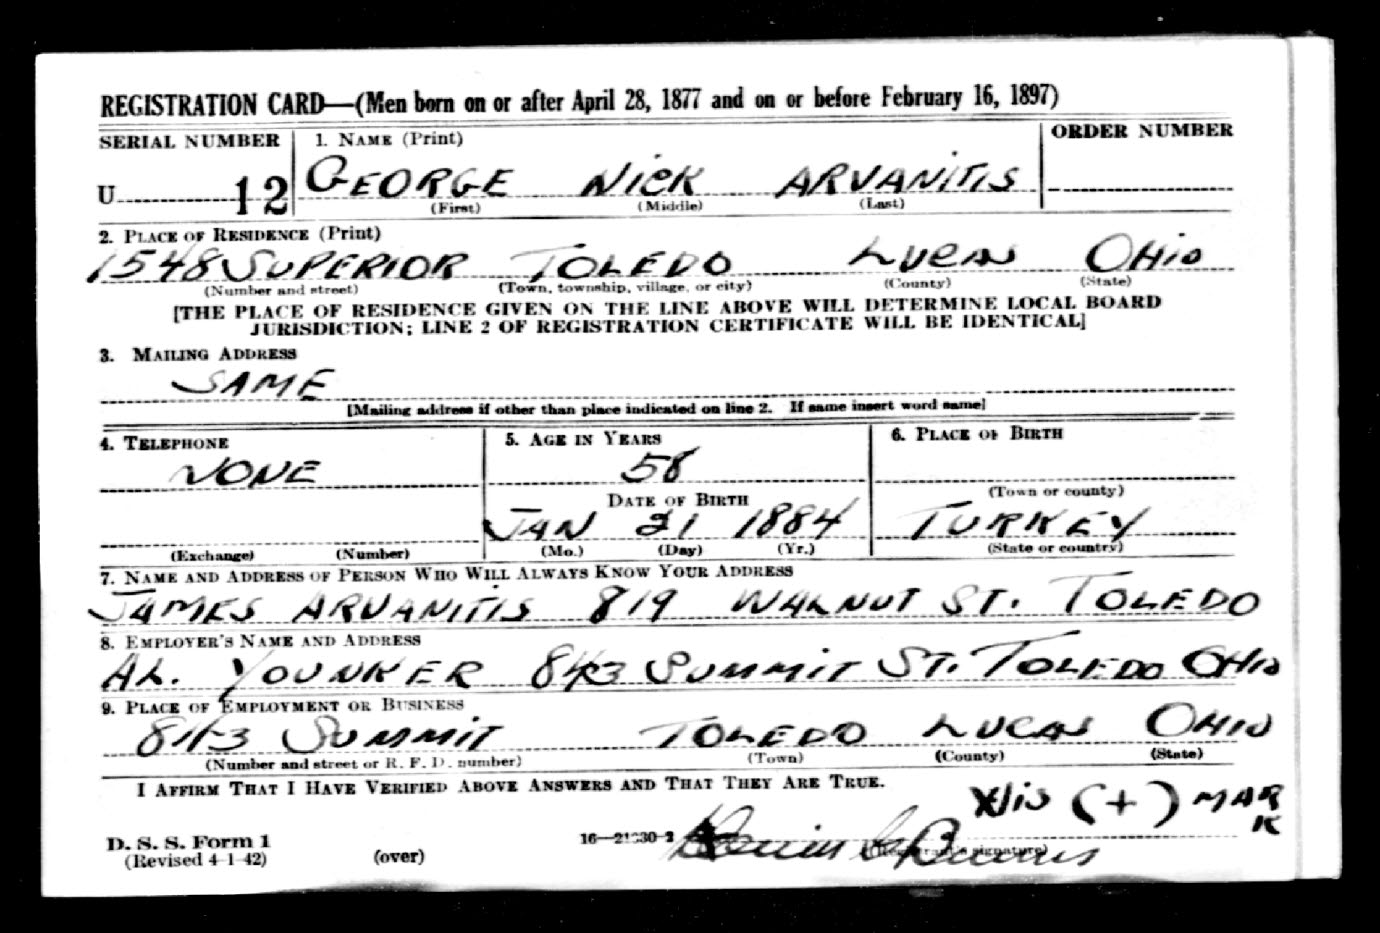 REGISTRATION CARD—(Men born on or after April 28, 1877 and on or before February 16, 1897)
SERIAL NUMBER 1. NAME (Print) ORDER NUMBER
U 12 GEORGE NICK ARVANITIS
(First) (Middle) (Last)
2. PLACE OF RESIDENCE (Print)
1548 SUPERIOR TOLEDO LUCAS OHIO
(Number and street) (Town, township, village, or city) (County) (State)
[THE PLACE OF RESIDENCE GIVEN ON THE LINE ABOVE WILL DETERMINE LOCAL BOARD
JURISDICTION; LINE 2 OF REGISTRATION CERTIFICATE WILL BE IDENTICAL]
3. MAILING ADDRESS
SAME
[Mailing address if other than place indicated on line 2. If same insert word same]
4. TELEPHONE 5. AGE IN YEARS 6. PLACE OF BIRTH
NONE 58
DATE OF BIRTH (Town or county)
JAN 21 1884 TURKEY
(Exchange) (Number) (Mo.) (Day) (Yr.) (State or country)
7. NAME AND ADDRESS OF PERSON WHO WILL ALWAYS KNOW YOUR ADDRESS
JAMES ARVANITIS 819 WALNUT ST. TOLEDO
8. EMPLOYER'S NAME AND ADDRESS
AL. YOUNKER 843 SUMMIT ST. TOLEDO OHIO
9. PLACE OF EMPLOYMENT OR BUSINESS
843 SUMMIT TOLEDO LUCAS OHIO
(Number and street or R. F. D. number) (Town) (County) (State)
I AFFIRM THAT I HAVE VERIFIED ABOVE ANSWERS AND THAT THEY ARE TRUE.
His (+) MARK
D. S. S. Form 1 16—21630-2
(Revised 4-1-42) (over) (Registrant's signature)